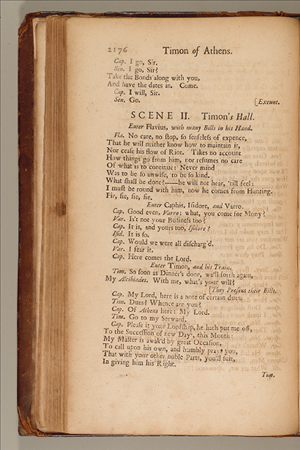 2176 Timon of Athens.
Cap. I go, Sir.
Sen. I go, Sir?
Take the Bonds along with you,
And have the dates in. Come.
Cap. I will, Sir.
Sen. Go. [Exeunt.
SCENE II. Timon's Hall.
Enter Flavius, with many Bills in his Hand.
Fla. No care, no stop, so senseless of expence,
That he will neither know how to maintain it,
Nor cease his flow of Riot. Takes no account
How things go from him, nor resumes no care
Of what is to continue: Never mind
Was to be so unwise, to be so kind.
What shall be done?—he will not hear, 'till feel:
I must be round with him, now he comes from Hunting.
Fie, fie, fie, fie.
Enter Caphis, Isidore, and Varro.
Cap. Good even, Varro: what, you come for Mony?
Var. Is't not your Business too?
Cap. It is, and yours too, Isidore?
Isid. It is so.
Cap. Would we were all discharg'd.
Var. I fear it.
Cap. Here comes the Lord.
Enter Timon, and his Train.
Tim. So soon as Dinner's done, we'll forth again,
My Alcibiades. With me, what's your will?
[They Present their Bills.
Cap. My Lord, here is a note of certain dues.
Tim. Dues? Whence are you?
Cap. Of Athens here, My Lord.
Tim. Go to my Steward.
Cap. Please it your Lordship, he hath put me off,
To the Succession of new Days, this Month:
My Master is awak'd by great Occasion,
To call upon his own, and humbly prays you,
That with your other noble Parts, you'll suit,
In giving him his Right.
Tim.